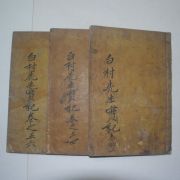 白村先生實記
白村先生實記卷之
白村先生實記卷之五六